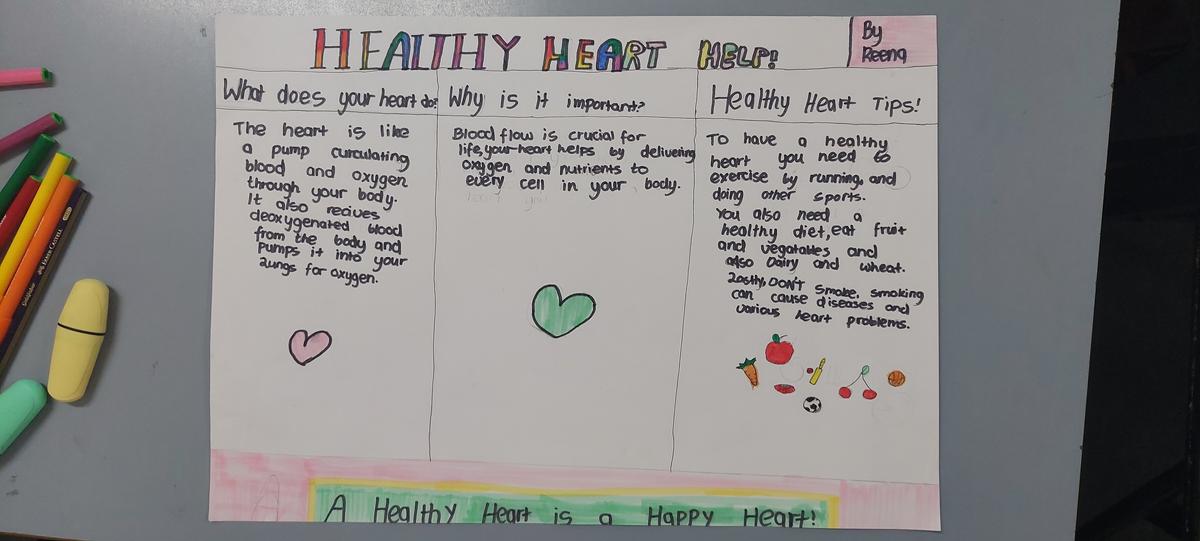 HEALTHY HEART HELP!
By
Reena
What does your heart do?
The heart is like
a pump curculating
blood and oxygen
through your body.
It also recives
deoxygenated blood
from the body and
pumps it into your
lungs for oxygen.
Why is it important?
Blood flow is crucial for
life, your heart helps by delivering
oxygen and nutrients to
every cell in your body.
Healthy Heart Tips!
To have a healthy
heart you need to
exercise by running, and
doing other sports.
You also need a
healthy diet, eat fruit
and vegatables and
also Dairy and wheat.
Lastly, DON'T smoke, smoking
can cause diseases and
various heart problems.
A Healthy Heart is a Happy Heart!
FABER CASTELL